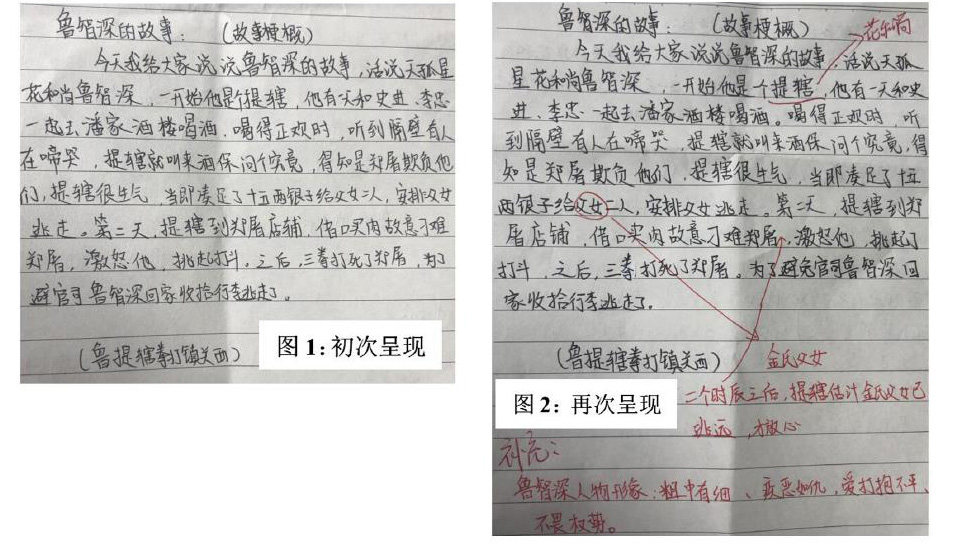 鲁智深的故事：（故事梗概）
今天我给大家说说鲁智深的故事，话说天孤星
花和尚鲁智深，一开始他是个提辖，他有一天和史进、李忠
一起去潘家酒楼喝酒，喝得正欢时，听到隔壁有人
在啼哭，提辖就叫来酒保问个究竟，得知是郑屠欺负他
们，提辖很生气，当即凑足了十五两银子给父女二人，安排父女
逃走。第二天，提辖到郑屠店铺，借口买肉故意刁难
郑屠，激怒他，挑起打斗，之后，三拳打死了郑屠，为了
避官司鲁智深回家收拾行李逃走了。
（鲁提辖拳打镇关西）
图1：初次呈现
鲁智深的故事：（故事梗概）
今天我给大家说说鲁智深的故事，话说天孤
星花和尚鲁智深，一开始他是个提辖，他有一天和史
进、李忠一起去潘家酒楼喝酒。喝得正欢时，听
到隔壁有人在啼哭，提辖就叫来酒保问个究竟，得
知是郑屠欺负他们，提辖很生气，当即凑足了十五
两银子给父女二人，安排父女逃走。第二天，提辖到郑
屠店铺，借口买肉故意刁难郑屠，激怒他，挑起了
打斗，之后，三拳打死了郑屠。为了避免官司鲁智深回
家收拾行李逃走了。
（鲁提辖拳打镇关西）
金氏父女
图2：再次呈现
二个时辰之后，提辖估计金氏父女已
逃远，才放心
补充：
鲁智深人物形象：粗中有细、疾恶如仇，爱打抱不平、
不畏权势。